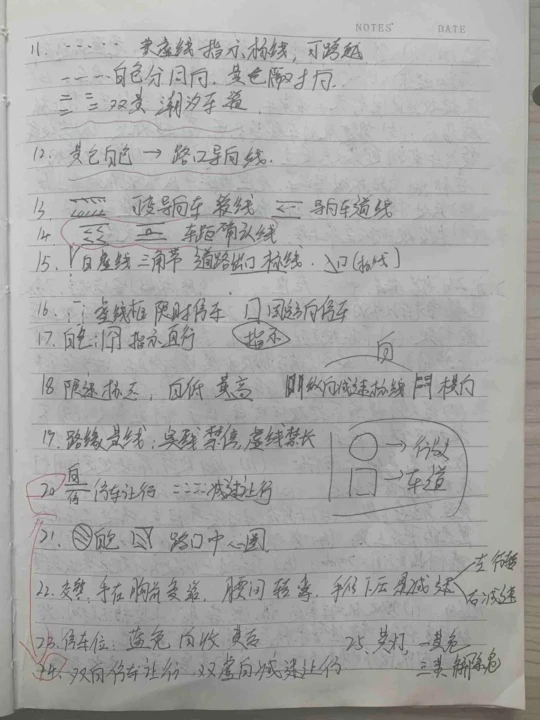 NOTES DATE
11. 黄虚线 指示标线，可跨越
白色分同向，黄色隔对向
双黄 潮汐车道
12. 黄色白色 → 路口导向线.
13. 可变导向车道线 导向车道线
14. 车距确认线
15. 白虚线 三角带 道路出口标线.
16. 虚线框 限时停车 固定方向停车
17. 白色 指示直行 指示
白
18 限速标志，白低 黄高 纵向减速标线 横向
19. 路缘黄线：实线禁停，虚线禁长
→ 行人
→ 车道
20 停车让行 减速让行
21. 白色 路口中心圈
22. 交警，手在胸前变道. 腰间转弯. 手低下压是减速
右减速
23. 停车位：蓝免 白收 黄专 25. 黄灯，一黄危
24. 双白停车让行 双虚白减速让行